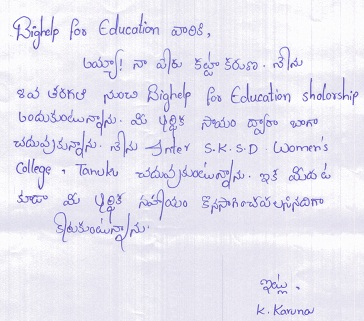 Bighelp for Education వారికి,
అయ్యా! నా పేరు కట్టా కరుణ. నేను
8వ తరగతి నుంచి Bighelp for Education sholorship
అందుకుంటున్నాను. మీ ఆర్థిక సాయం ద్వారా బాగా
చదువుకున్నాను. నేను Inter S.K.S.D Women's
College, Tanuku చదువుకుంటున్నాను. ఇక మీదట
కూడా మీ ఆర్థిక సహాయం కొనసాగించవలసినదిగా
కోరుకుంటున్నాను.
ఇట్లు,
K. Karuna